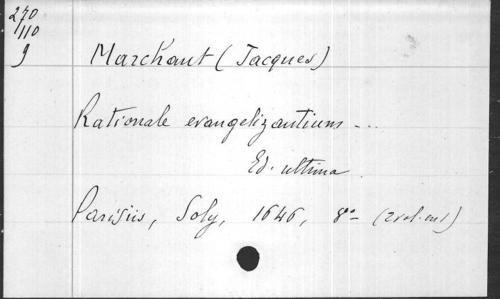 270
110
9
Marchant (Jacques)
Rationale evangelizantium ...
Ed. ultima
Parisiis, Soly, 1646, 8°- (2 vol. en 1)